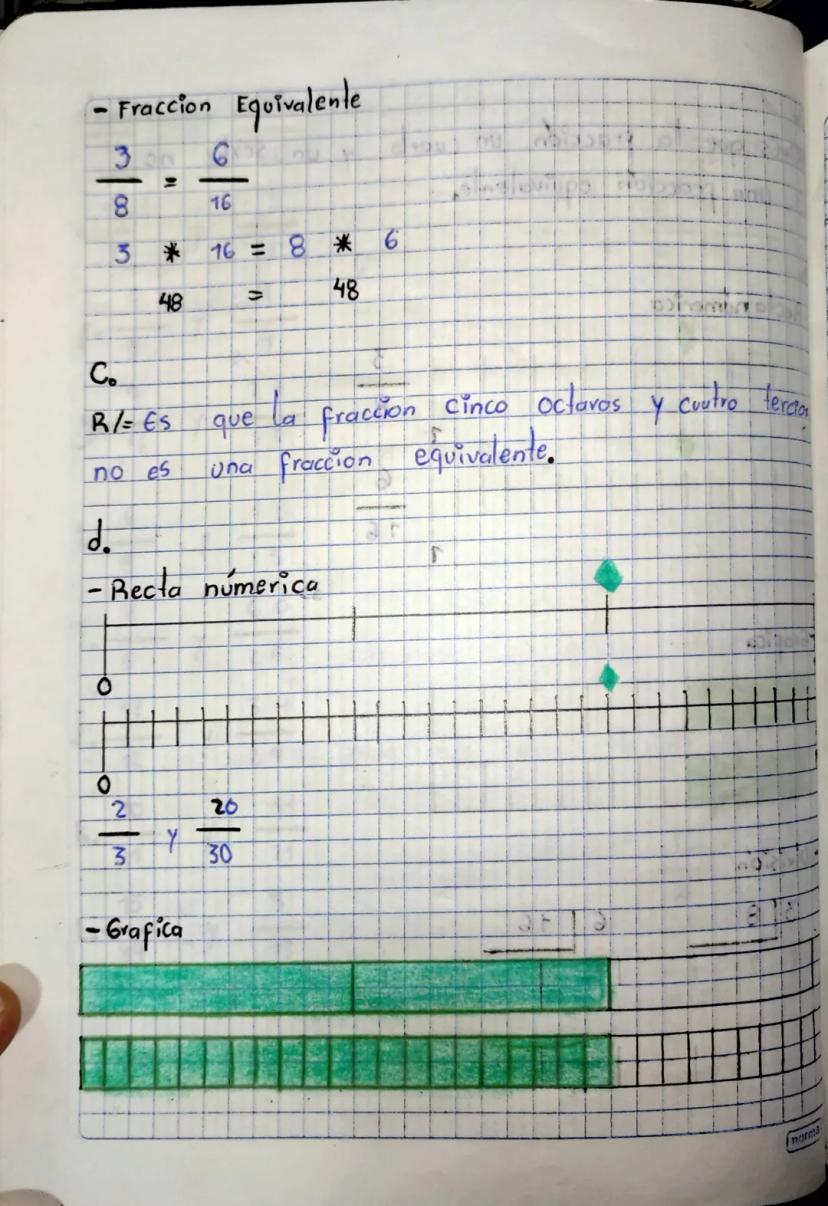 - Fraccion Equivalente
3/8 = 6/16
3 * 16 = 8 * 6
48 = 48
C.
R/= Es que la fraccion cinco octavos y cuatro tercios
no es una fraccion equivalente.
d.
- Recta númerica
0
0
2/3 y 20/30
- Grafica
norma